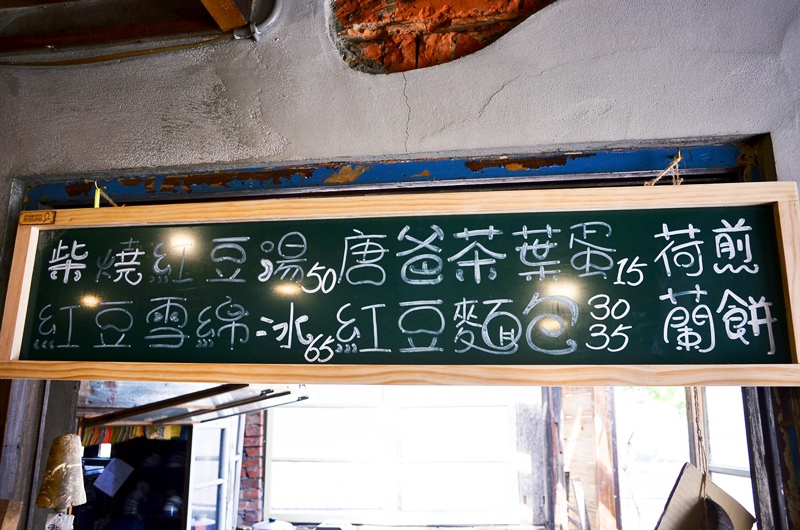 柴燒紅豆湯50 唐爸茶葉蛋15
紅豆雪綿冰65 紅豆麵包30 35
荷蘭煎餅